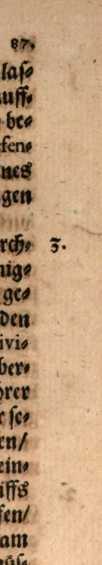 87.
las⸗
auff⸗
be⸗
sen⸗
nes
gen
rch⸗ 3.
nig⸗
ge⸗
den
ivi⸗
ber⸗
hrer
r se⸗
en/
ein⸗
iffs
sen/
am